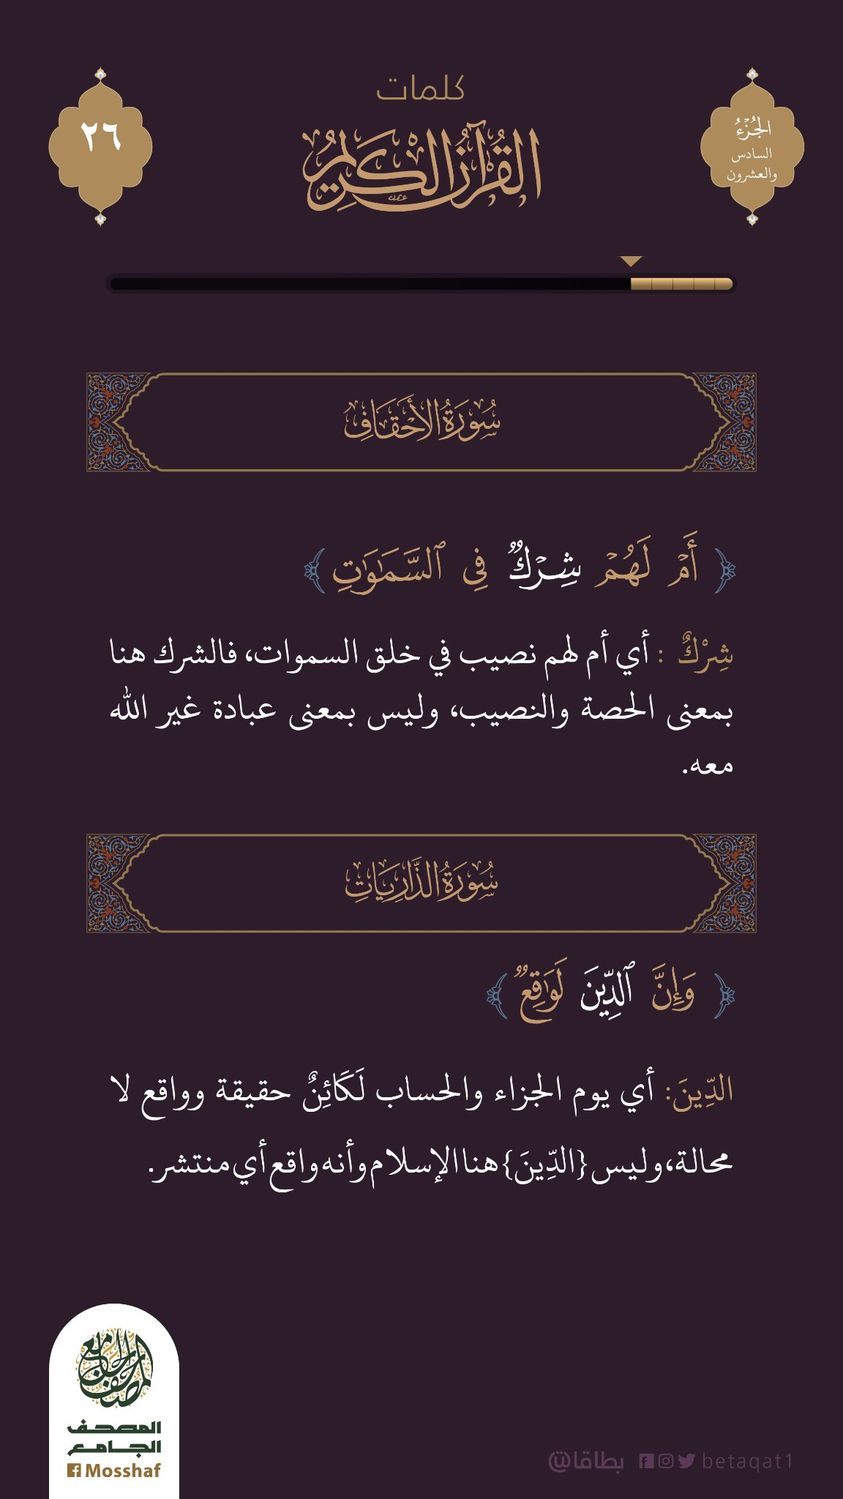 كلمات
القُرآنُ الكَرِيم
٢٦
الجُزْءُ
السادس
والعشرون
سُورَةُ الأَحْقَافِ
﴿ أَمْ لَهُمْ شِرْكٌ فِي ٱلسَّمَٰوَٰتِ ﴾
شِرْكٌ : أي أم لهم نصيب في خلق السموات، فالشرك هنا
بمعنى الحصة والنصيب، وليس بمعنى عبادة غير الله
معه.
سُورَةُ الذَّارِيَاتِ
﴿ وَإِنَّ ٱلدِّينَ لَوَٰقِعٌ ﴾
الدِّينَ: أي يوم الجزاء والحساب لَكَائِنٌ حقيقة وواقع لا
محالة، وليس {الدِّينَ} هنا الإسلام وأنه واقع أي منتشر.
المصحف الجامع
المصحف
الجامع
Mosshaf
@بطاقا betaqat1